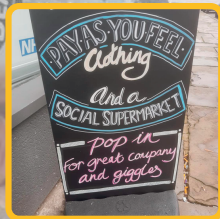 NHS
PAY-AS-YOU-FEEL
Clothing
And a
SOCIAL SUPERMARKET
Pop in
For great company
and giggles